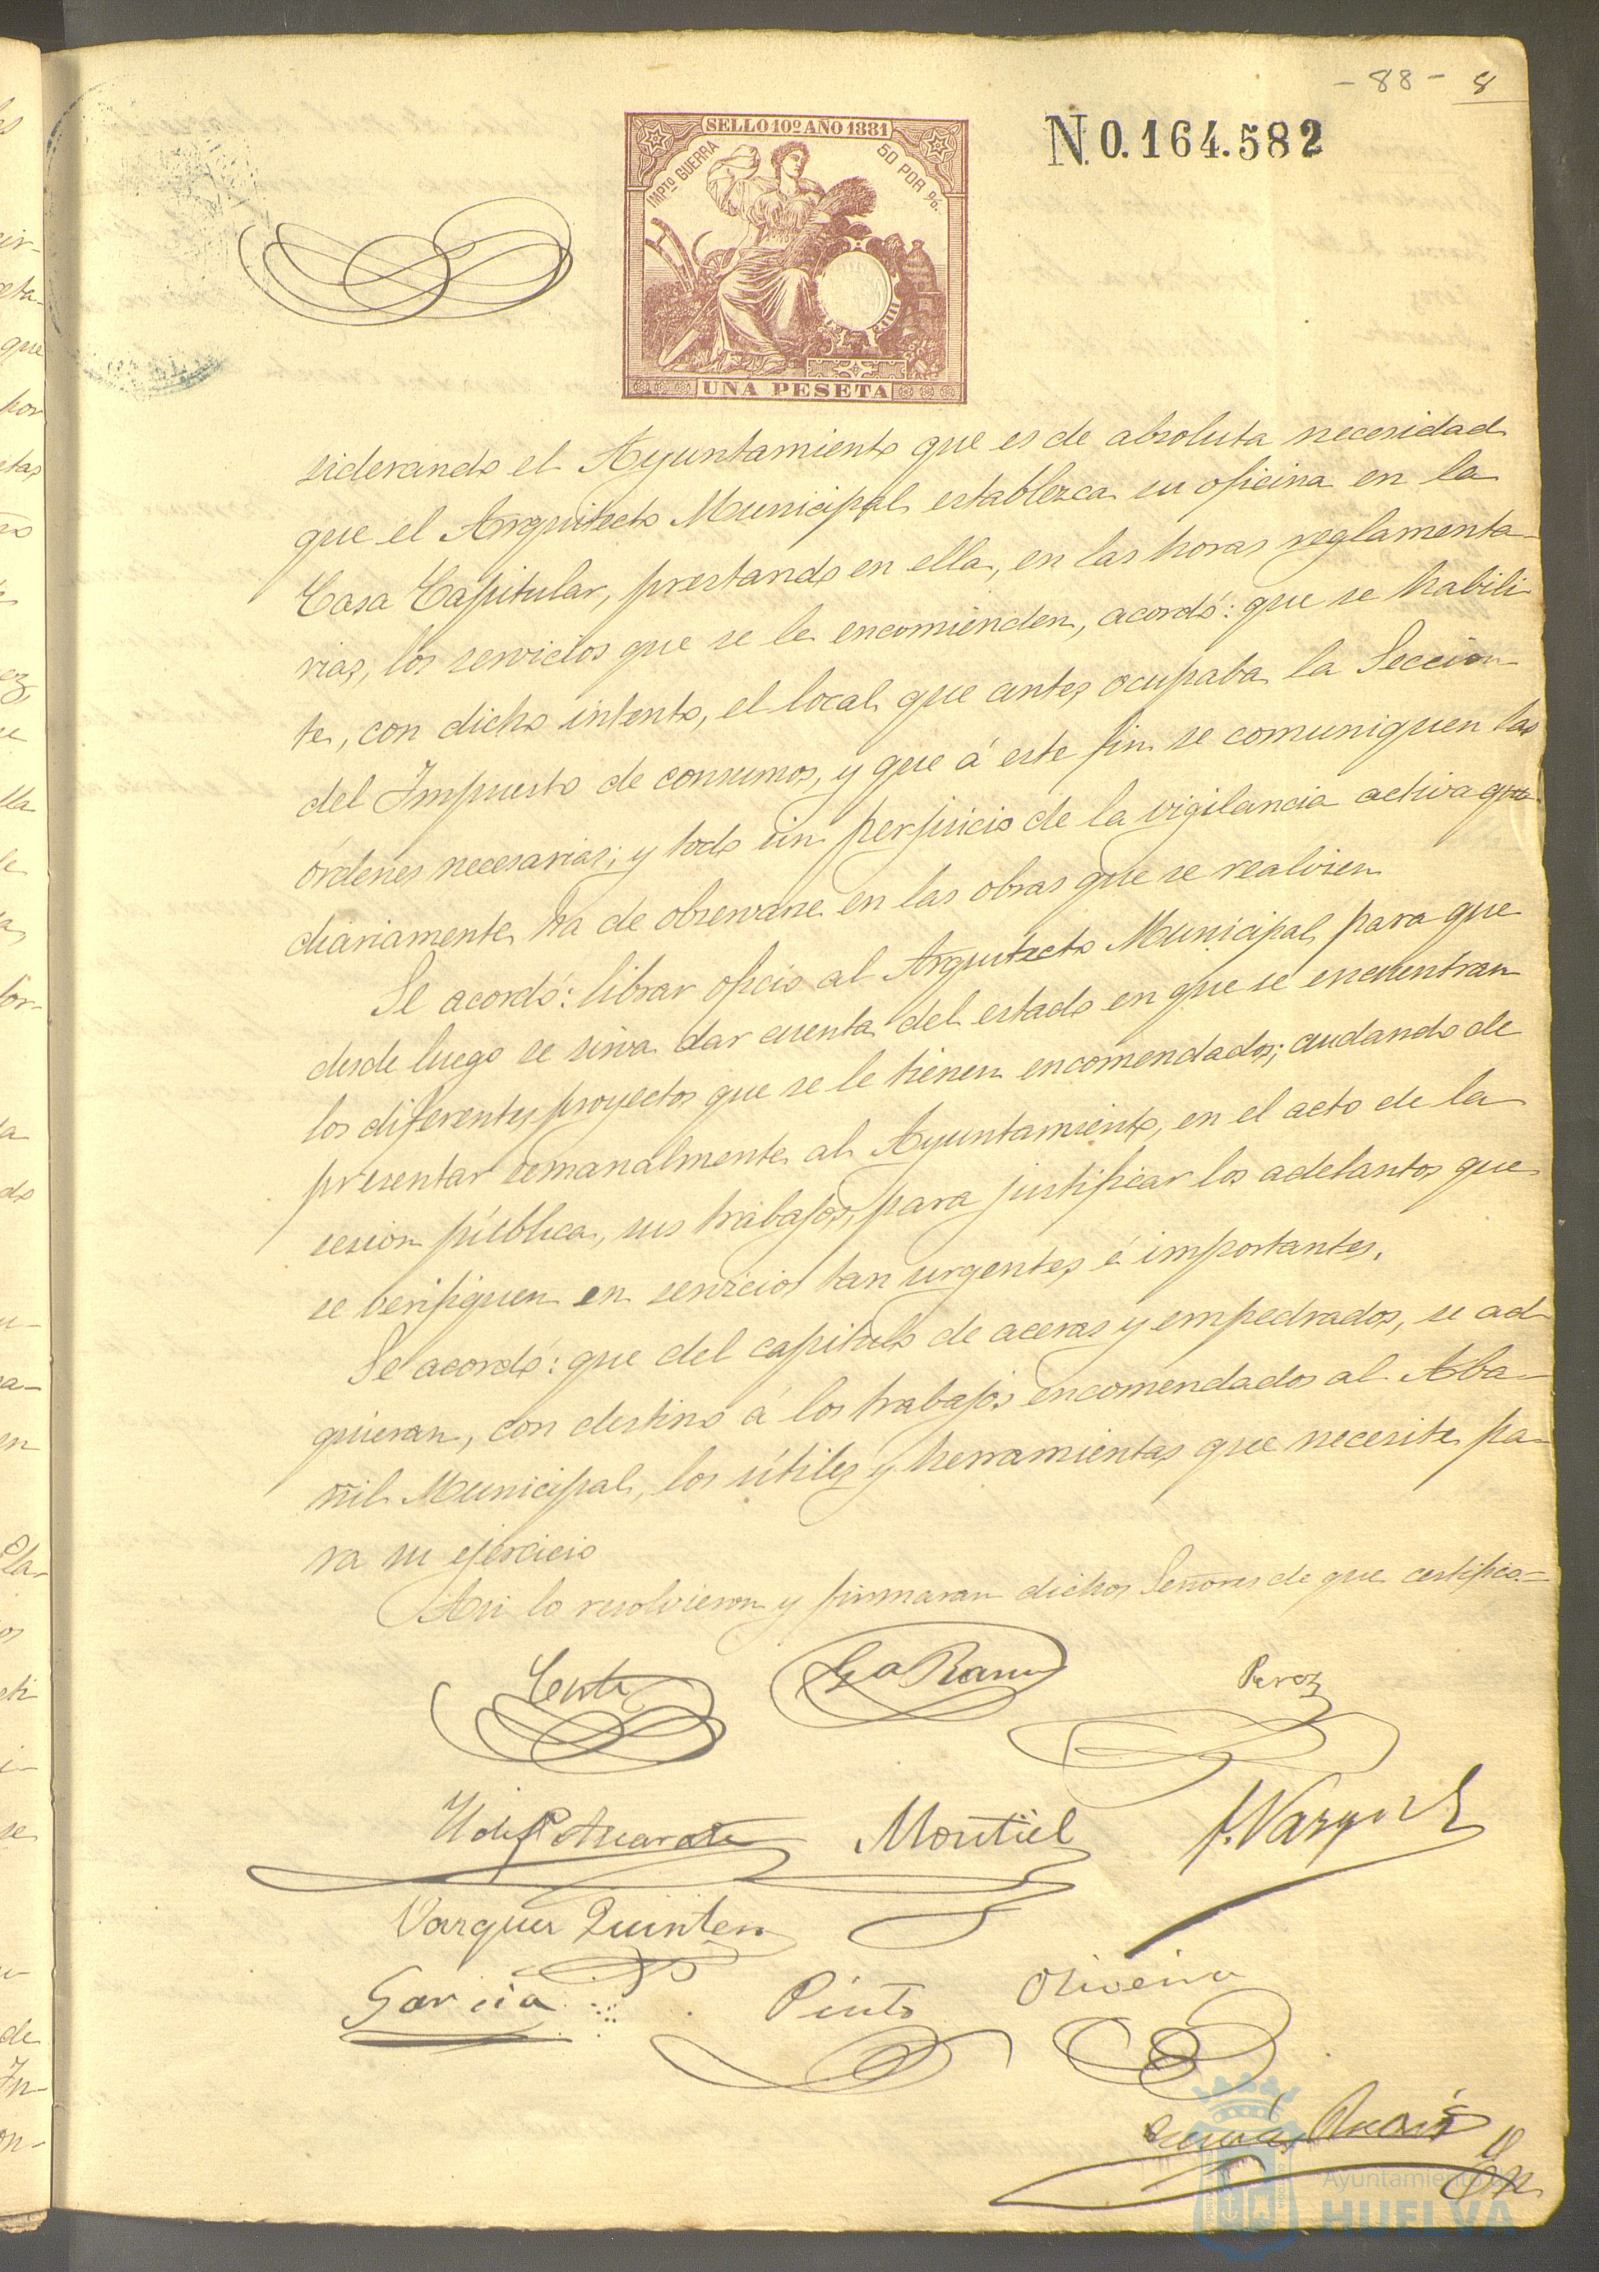 - 88 - 8
SELLO 10º AÑO 1881
IMPTO GUERRA
50 POR %.
UNA PESETA
N.0.164.582
siderando el Ayuntamiento que es de absoluta necesidad
que el Arquitecto Municipal establezca su oficina en la
Casa Capitular, prestando en ella, en las horas reglamenta-
rias, los servicios que se le encomienden, acordó: que se habili-
te, con dicho intento, el local que antes ocupaba la Sección
del Impuesto de consumos, y que á este fin se comuniquen las
órdenes necesarias; y todo sin perjuicio de la vigilancia activa que
diariamente ha de observarse en las obras que se realicen
Se acordó: librar oficio al Arquitecto Municipal para que
desde luego se sirva dar cuenta del estado en que se encuentran
los diferentes proyectos que se le tienen encomendados; cuidando de
presentar semanalmente al Ayuntamiento, en el acto de la
sesion pública, sus trabajos, para justificar los adelantos que
se verifiquen en servicios tan urgentes é importantes.
Se acordó: que del capitulo de aceras y empedrados, se ad-
quieran, con destino á los trabajos encomendados al Alba-
ñil Municipal, los útiles y herramientas que necesite pa-
ra su ejercicio
Asi lo resolvieron y firmaran dichos Señores de que certifico.=
Gª Ramos
Perez
Montiel
F. Vazquez
Vazquez Quintero
Garcia
Pinto
Oliveira
Ayuntamiento de
HUELVA